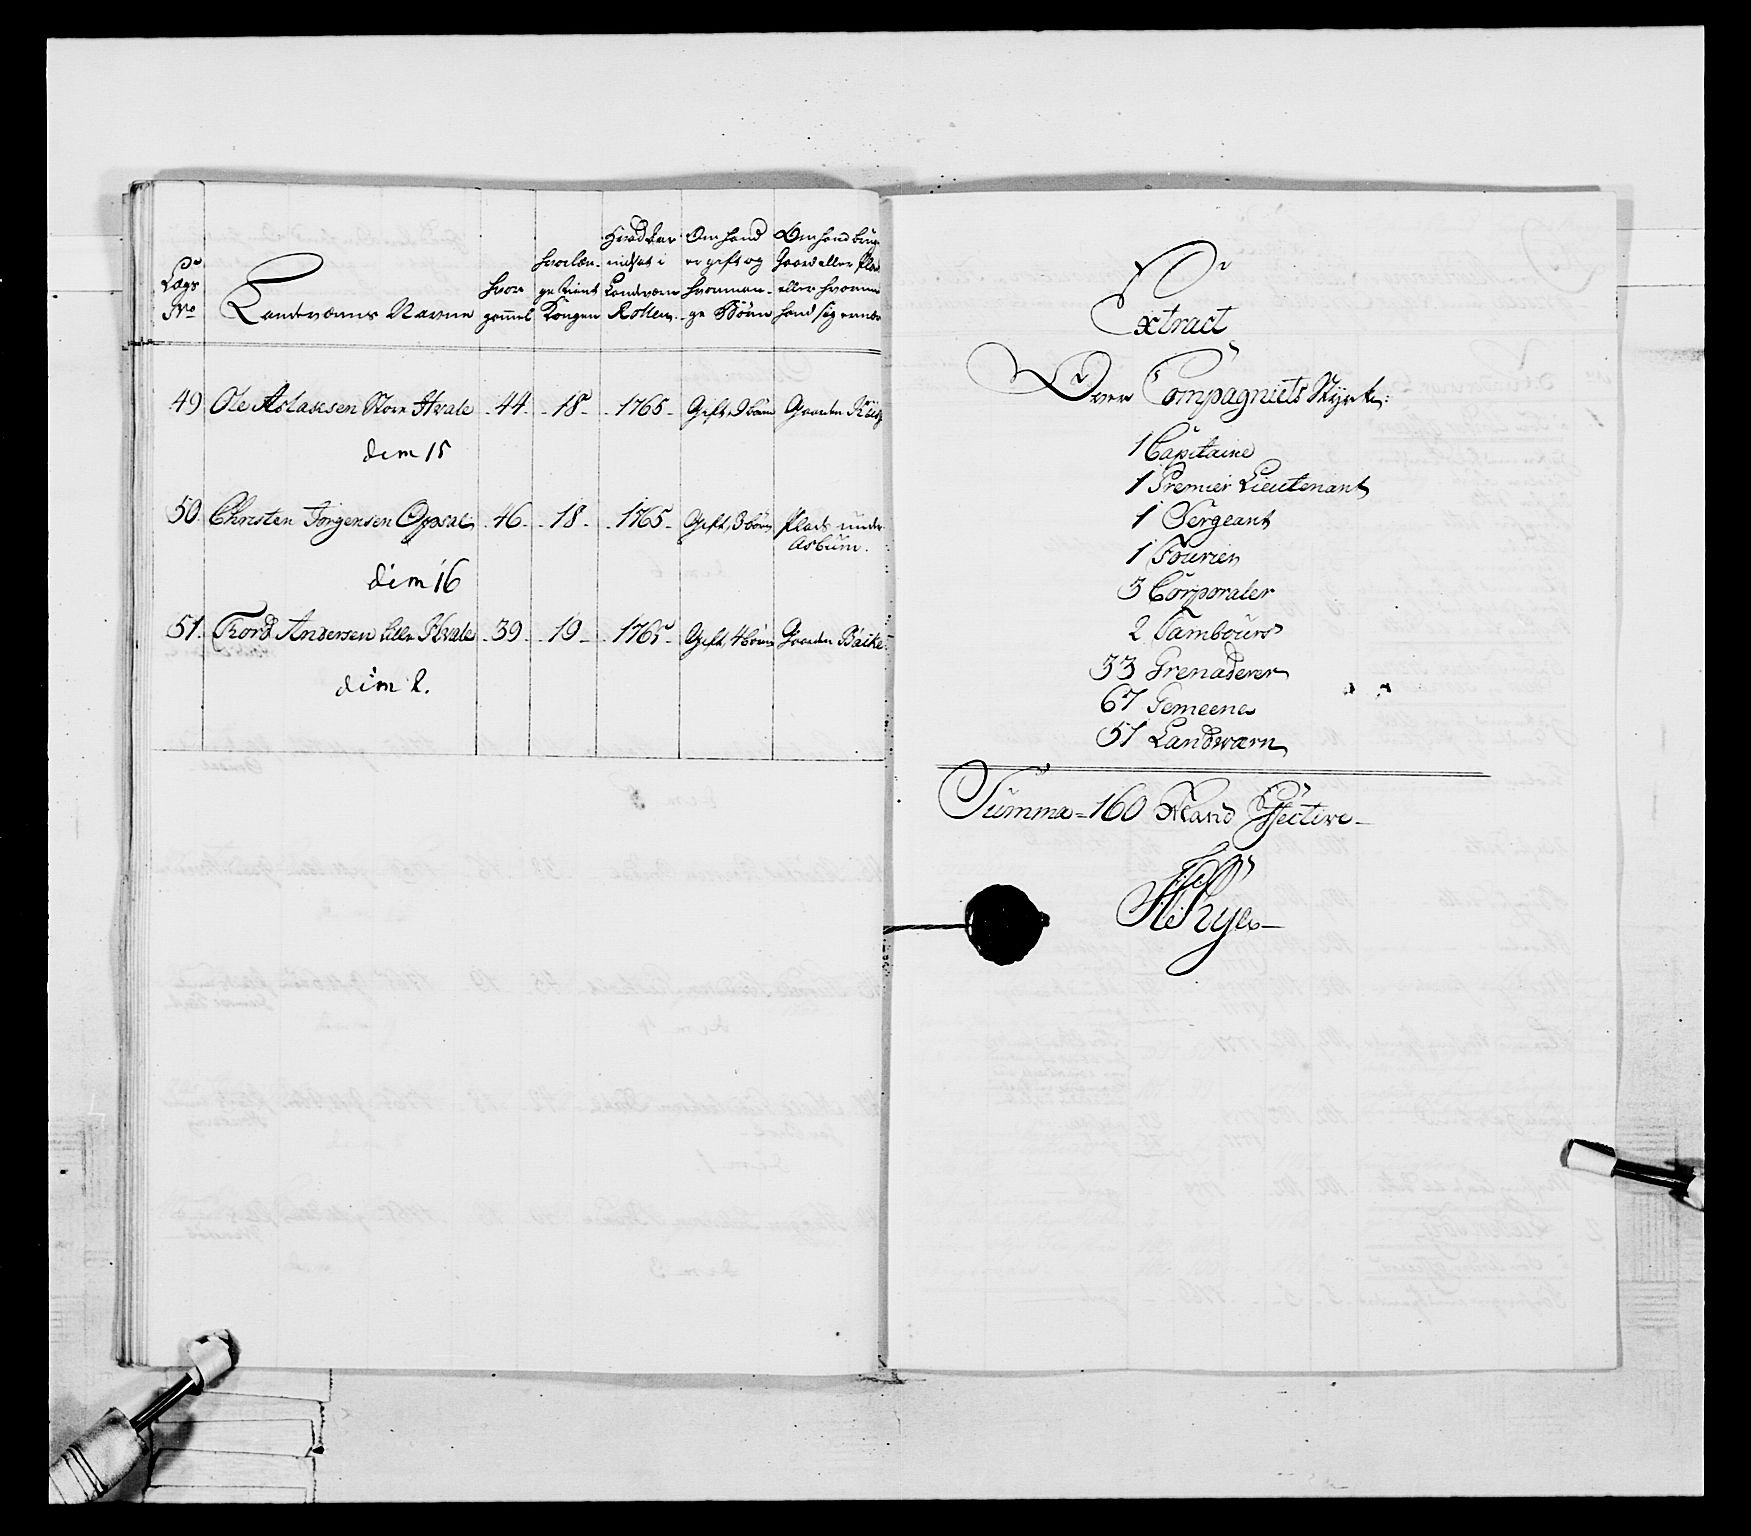 Lægs
No
Landværns Navne
hvor
gammel
hvor læn-
ge tient
Kongen
Hvad Aar
indsat i
Landværn
Rollen.
Om hand
er gift og
hvor man-
ge Børn
Om hand brug
Gaard eller Plads
eller hvorme
hand sig ernær
49 Ole Aslaksen Store Hvale - 44 - 18 - 1765 - Gift, børn Gaarden
dim 15
50 Christen Jørgensen Oppsal - 46 - 18 - 1765 - Gift, 3 børn Plads under
Asbüm.
dim 16
51. Tord Andersen Lille Hvale - 39 - 19 - 1765 - Gift, 4 børn Gaarden Bäike
dim 2.
Extract
Over Compagniets Styrke:
1 Capitaine
1 Premier Lieutenant
1 Sergeant
1 Fourier
3 Corporaler
2 Tambours
33 Grenaderer
67 Gemeene
51 Landværn
Summa = 160 Mand Effective
HRye